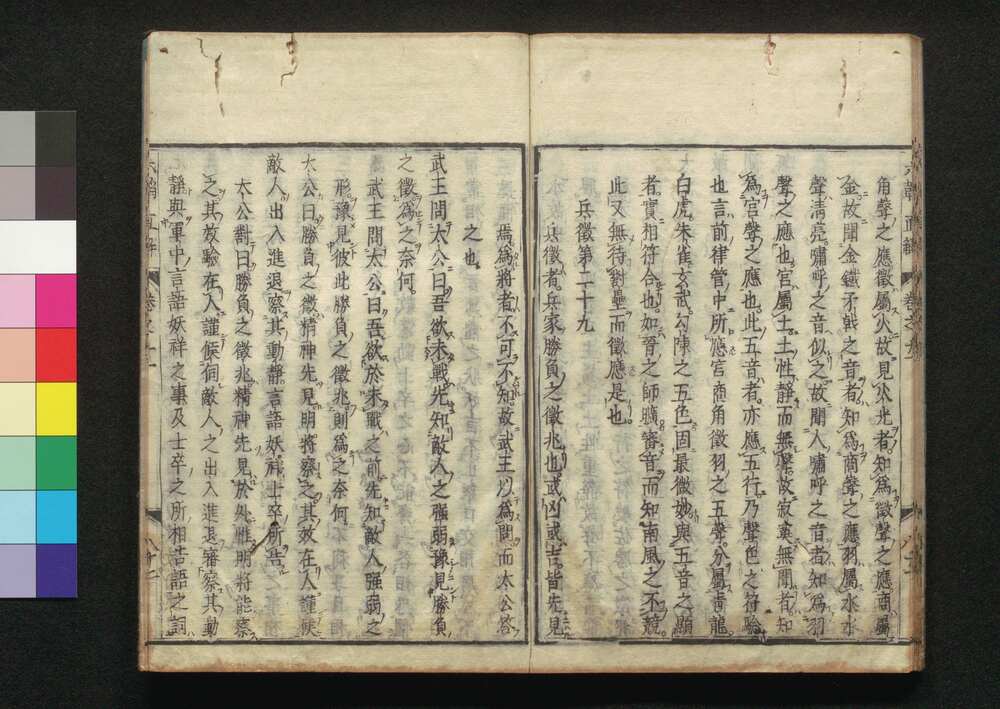 角聲之應徵屬火故見火光者知爲徵聲之應商屬
金故聞金鐵矛戟之音者知爲商聲之應羽屬水水
聲淸亮嘯呼之音似之故聞人嘯呼之音者知爲羽
聲之應也宮屬土土性靜而無聲故寂寞無聞者知
爲宮聲之應也此五音者亦應五行乃聲色之符驗
也言前律管中所應宮商角徵羽之五聲分屬靑龍
白虎朱雀玄武勾陳之五色固最微妙與五音之顯
者實相符合也如晉之師曠審音而知南風之不競
此又無待對壘而徵應是也
兵徵第二十九
兵徵者兵家勝負之徵兆也或凶或吉皆先見
焉爲將者不可不知故武王以爲問而太公答
之也
武王問太公曰吾欲未戰先知敵人之强弱豫見勝負
之徵爲之奈何
武王問太公曰吾欲於未戰之前先知敵人强弱之
形豫見彼此勝負之徵兆則爲之奈何
太公曰勝負之徵精神先見明將察之其效在人謹候
敵人出入進退察其動靜言語妖祥士卒所告
太公對曰勝負之徵兆精神先見於外惟明將能察
之其效驗在人謹候伺敵人之出入進退審察其動
靜與軍中言語妖祥之事及士卒之所相告語之詞